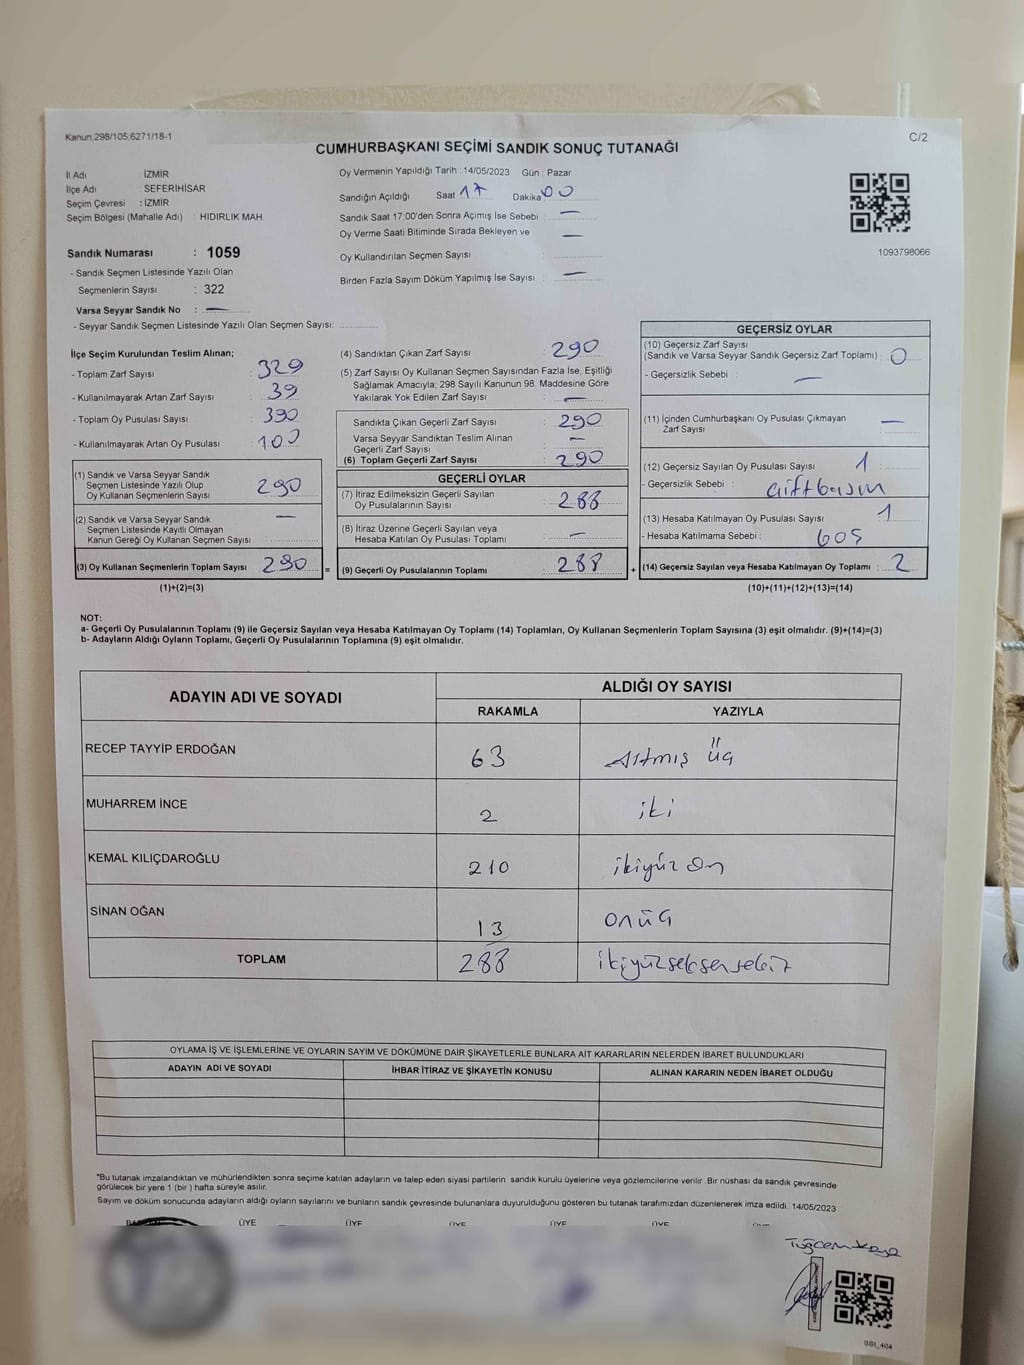 Kanun,298/105;6271/18-1
C/2
CUMHURBAŞKANI SEÇİMİ SANDIK SONUÇ TUTANAĞI
İl Adı İZMİR
İlçe Adı : SEFERİHİSAR
Seçim Çevresi : İZMİR
Seçim Bölgesi (Mahalle Adı) : HIDIRLIK MAH.
Sandık Numarası : 1059
- Sandık Seçmen Listesinde Yazılı Olan
Seçmenlerin Sayısı : 322
Varsa Seyyar Sandık No : —
- Seyyar Sandık Seçmen Listesinde Yazılı Olan Seçmen Sayısı:
Oy Vermenin Yapıldığı Tarih : 14/05/2023 Gün : Pazar
Sandığın Açıldığı Saat 17 Dakika 00
Sandık Saat 17:00'den Sonra Açımış İse Sebebi : —
Oy Verme Saati Bitiminde Sırada Bekleyen ve —
Oy Kullandırılan Seçmen Sayısı
Birden Fazla Sayım Döküm Yapılmış İse Sayısı : —
1093798066
İlçe Seçim Kurulundan Teslim Alınan;
- Toplam Zarf Sayısı : 329
- Kullanılmayarak Artan Zarf Sayısı : 39
- Toplam Oy Pusulası Sayısı : 390
- Kullanılmayarak Artan Oy Pusulası : 100
(1) Sandık ve Varsa Seyyar Sandık
Seçmen Listesinde Yazılı Olup
Oy Kullanan Seçmenlerin Sayısı : 290
(2) Sandık ve Varsa Seyyar Sandık —
Seçmen Listesinde Kayıtlı Olmayan
Kanun Gereği Oy Kullanan Seçmen Sayısı :
(3) Oy Kullanan Seçmenlerin Toplam Sayısı : 290 =
(1)+(2)=(3)
(4) Sandıktan Çıkan Zarf Sayısı : 290
(5) Zarf Sayısı Oy Kullanan Seçmen Sayısından Fazla İse, Eşitliği
Sağlamak Amacıyla; 298 Sayılı Kanunun 98. Maddesine Göre
Yakılarak Yok Edilen Zarf Sayısı : —
Sandıkta Çıkan Geçerli Zarf Sayısı : 290
Varsa Seyyar Sandıktan Teslim Alınan —
Geçerli Zarf Sayısı
(6) Toplam Geçerli Zarf Sayısı : 290
GEÇERLİ OYLAR
(7) İtiraz Edilmeksizin Geçerli Sayılan
Oy Pusulalarının Sayısı : 288
(8) İtiraz Üzerine Geçerli Sayılan veya
Hesaba Katılan Oy Pusulası Toplamı : —
(9) Geçerli Oy Pusulalarının Toplamı : 288 +
GEÇERSİZ OYLAR
(10) Geçersiz Zarf Sayısı
(Sandık ve Varsa Seyyar Sandık Geçersiz Zarf Toplamı) : 0
- Geçersizlik Sebebi : —
(11) İçinden Cumhurbaşkanı Oy Pusulası Çıkmayan —
Zarf Sayısı
(12) Geçersiz Sayılan Oy Pusulası Sayısı : 1
- Geçersizlik Sebebi : çift basım
(13) Hesaba Katılmayan Oy Pusulası Sayısı : 1
- Hesaba Katılmama Sebebi : boş
(14) Geçersiz Sayılan veya Hesaba Katılmayan Oy Toplamı : 2
(10)+(11)+(12)+(13)=(14)
NOT:
a- Geçerli Oy Pusulalarının Toplamı (9) ile Geçersiz Sayılan veya Hesaba Katılmayan Oy Toplamı (14) Toplamları, Oy Kullanan Seçmenlerin Toplam Sayısına (3) eşit olmalıdır. (9)+(14)=(3)
b- Adayların Aldığı Oyların Toplamı, Geçerli Oy Pusulalarının Toplamına (9) eşit olmalıdır.
ADAYIN ADI VE SOYADI ALDIĞI OY SAYISI
RAKAMLA YAZIYLA
RECEP TAYYİP ERDOĞAN 63 Altmış Üç
MUHARREM İNCE 2 iki
KEMAL KILIÇDAROĞLU 210 ikiyüz On
SİNAN OĞAN 13 onüç
TOPLAM 288 ikiyüzseksensekiz
OYLAMA İŞ VE İŞLEMLERİNE VE OYLARIN SAYIM VE DÖKÜMÜNE DAİR ŞİKAYETLERLE BUNLARA AİT KARARLARIN NELERDEN İBARET BULUNDUKLARI
ADAYIN ADI VE SOYADI İHBAR İTİRAZ VE ŞİKAYETİN KONUSU ALINAN KARARIN NEDEN İBARET OLDUĞU
*Bu tutanak imzalandıktan ve mühürlendikten sonra seçime katılan adayların ve talep eden siyasi partilerin sandık kurulu üyelerine veya gözlemcilerine verilir .Bir nüshası da sandık çevresinde
görülecek bir yere 1 (bir ) hafta süreyle asılır.
Sayım ve döküm sonucunda adayların aldığı oyların sayılarını ve bunların sandık çevresinde bulunanlara duyurulduğunu gösteren bu tutanak tarafımızdan düzenlenerek imza edildi. 14/05/2023
BAŞKAN ÜYE ÜYE ÜYE ÜYE ÜYE ÜYE
Tuğcem Kaya